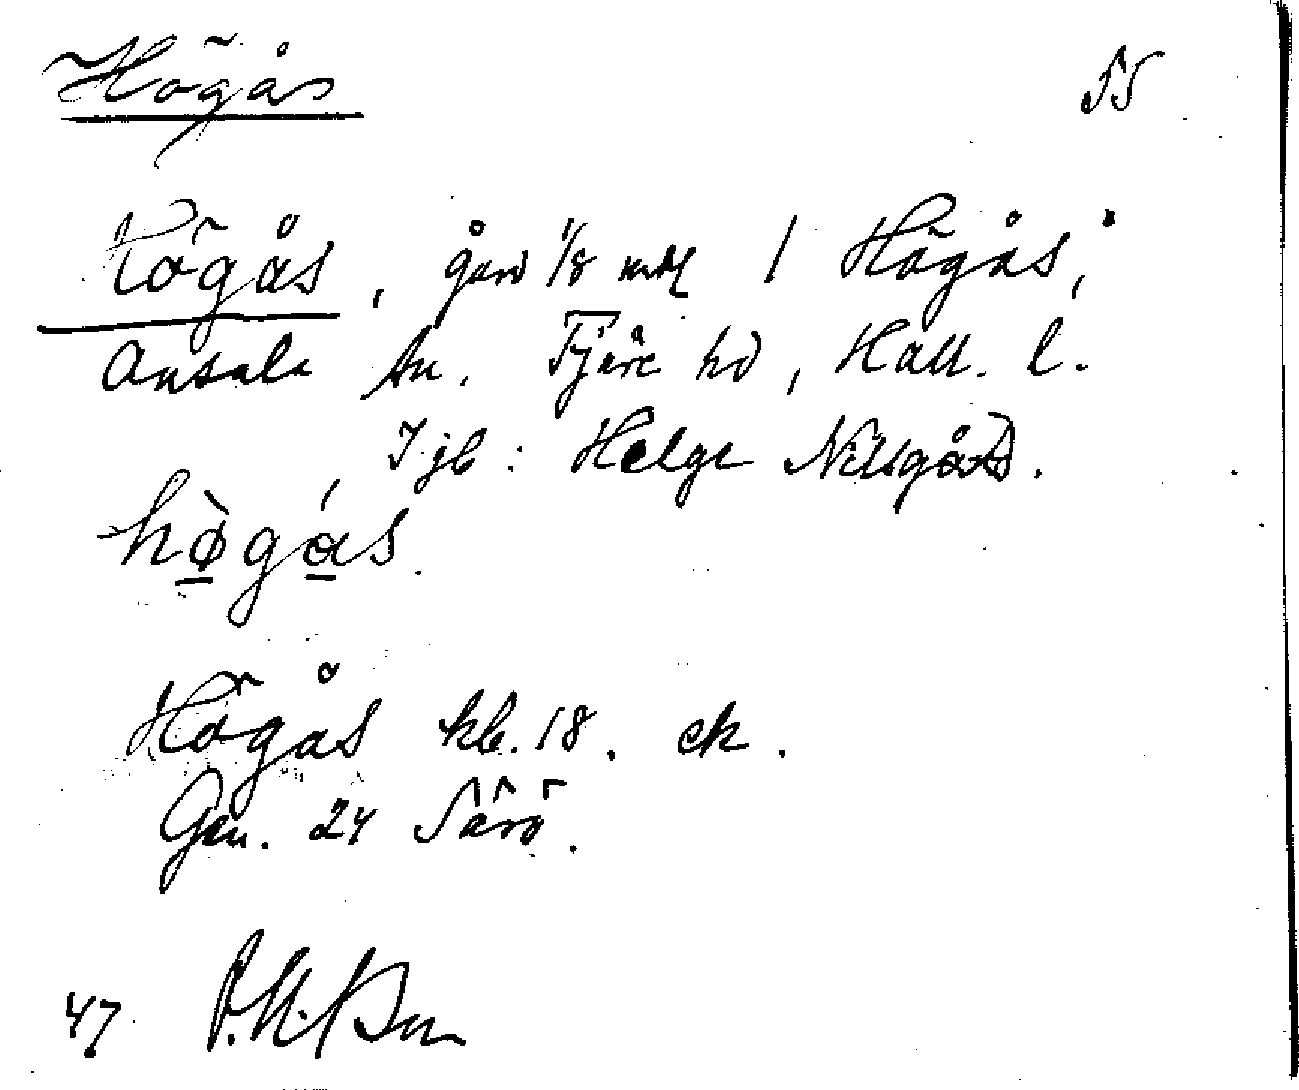 Högås 55
Högås, gård 1/8 mtl 1 Högås,
Onsala sn. Fjäre hd, Hall. l.
I jb: Helge Nilsgård.
hø̀gás
Högås kb. 18. ek.
Gen. 24 Särö.
47